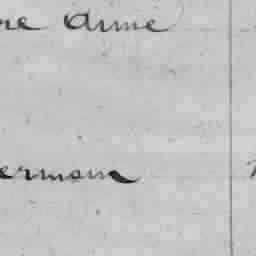 re Anne
ermain